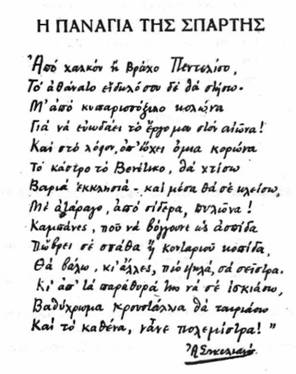 Η ΠΑΝΑΓΙΑ ΤΗΣ ΣΠΑΡΤΗΣ
Ἀπό χαλκόν ἤ βράχο Πεντελίσο,
Τό ἀθάνατο εἴδωλό σου δέ θά στήσω·
Μ' ἀπό κυπαρισσόξυλο κολώνα
Γιά νά εὐωδάει τό ἔργο μου στόν αἰῶνα!
Καί στό λόφον, ὁπ' ὤχει ὅμοια κορώνα
Τό κάστρο τό Βενέτικο, θά χτίσω
Βαριά ἐκκλησιά - καί μέσα θά σέ κλείσω,
Μέ ἀτάραγο, ἀπό σίδερα, πυλιῶνα!
Καμπάνες, πού νά βόγγουνε ὡς ἀσπίδα
Πὤβρει σέ σπάθα ἤ κονταριοῦ κοπίδα,
Θά βάλω, κι' ἄλλες, πιό ψηλά, σά σεῖστρα.
Κι' ἀπ' τά παράθυρά της νά σέ ἰσκιάσω,
Βαθύχρωμα κρουστάλλια θά ταιριάσω
Καί τό καθένα, νἆνε πολεμίστρα!"
Ἀ. Σικελιανός